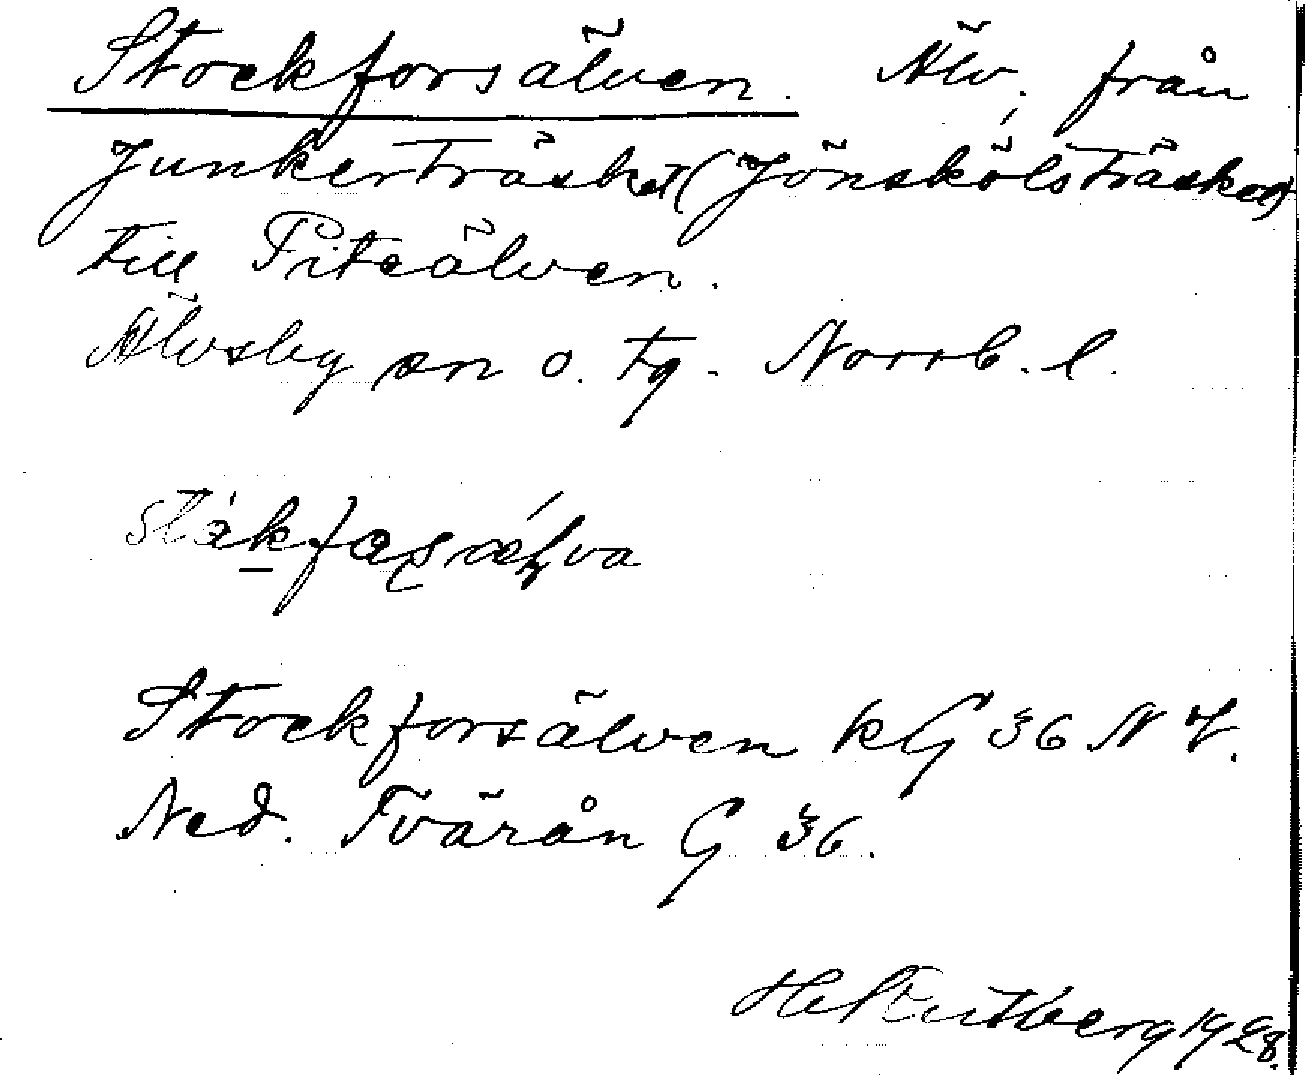 Stockforsälven. Älv. från
Junkerträsket (Jönskölsträsket)
till Piteälven.
Älvsby sn o. tg. Norrb. l.
Stockforsälven kG 36 N V.
Ned. Tvärån G 36.
1928.